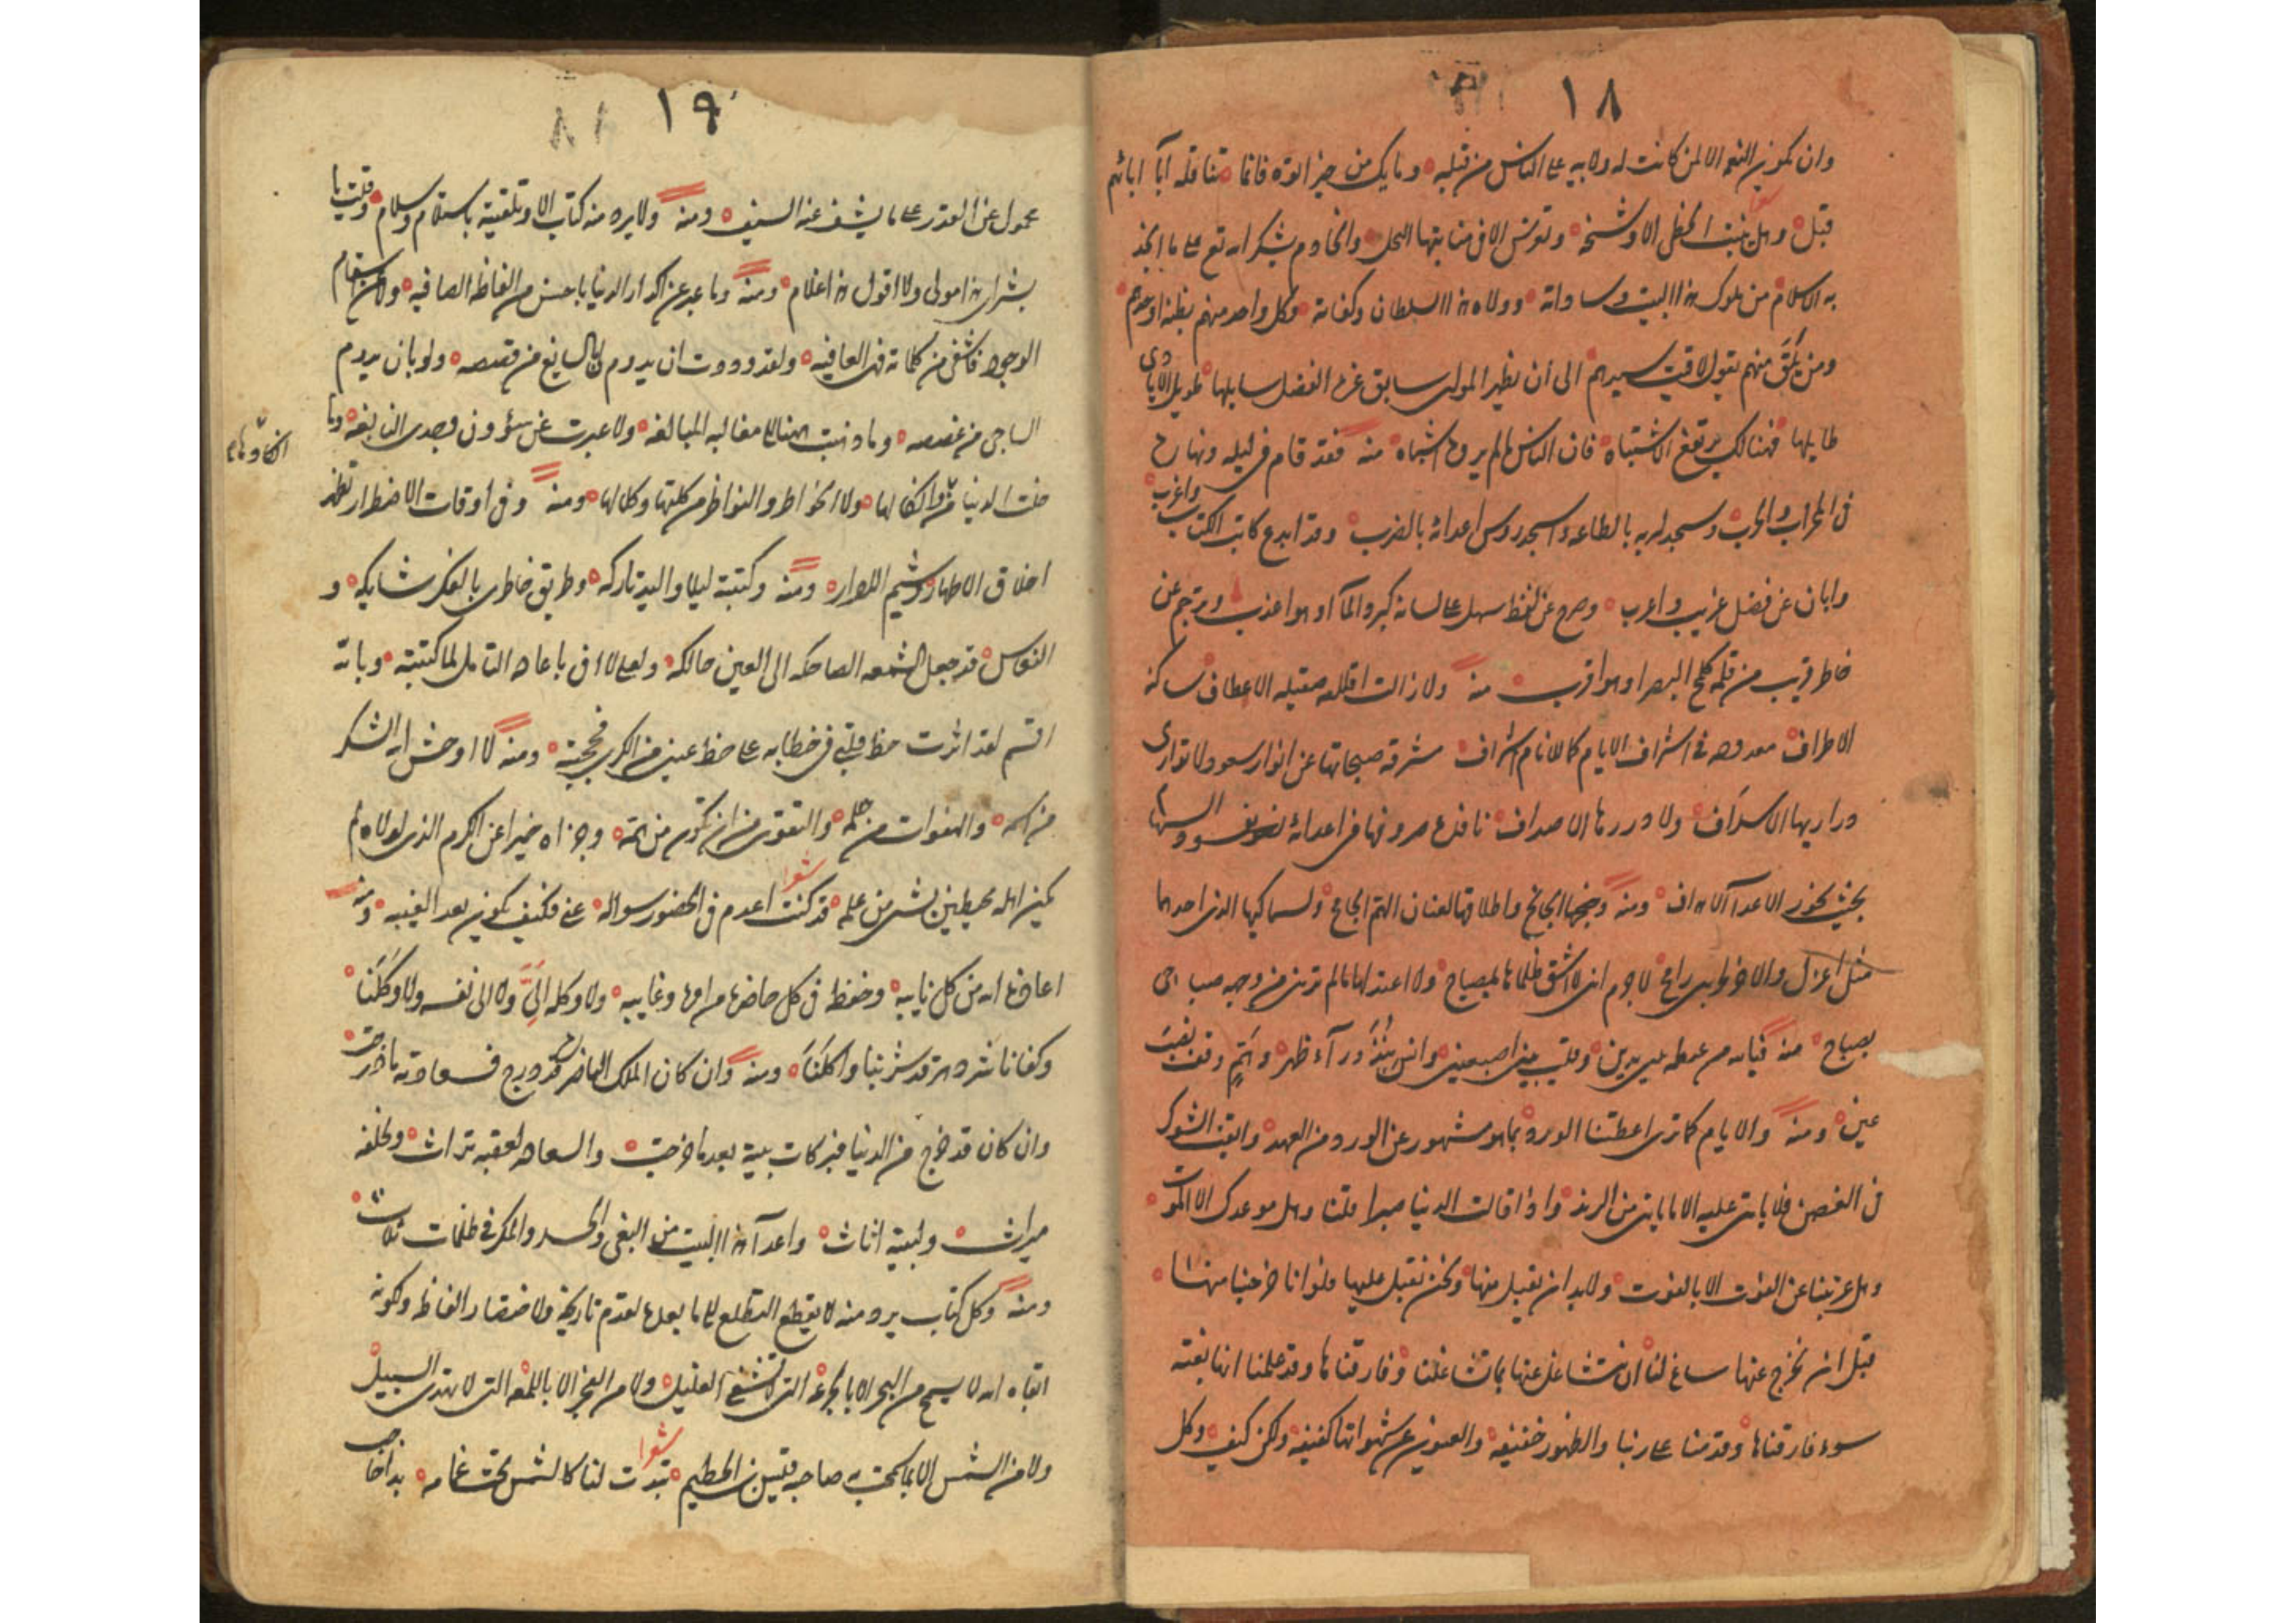 ١٨
وان يكون النعم الا لمن كانت له ولاية على الناس من قبله وما يك من خير اتوه فانما شعر تناقله آبا آبائهم
قبل وهل ينبت الخطى الا وشيجه وتغرس الا فى منابتها النخل والخادم يشكر الله تع على ما انجد
به الاسلام من ملوك هذا البيت وساداته وولاة هذا السلطان وكفاته وكل واحد منهم بظنه اوحدهم
ومن تلق منهم تقول لاقيت سيدهم الى أن يظهر المولى سابق غرة الفضل سابلها طويل الايادى
طايلها فهنالك يرتفع الاشتباه فان الناس لم يروا اشباه منه فقد قام فى ليله ونهاره
فى المحراب والحرب وسجد لربه بالطاعة واسجد روس اعدائه بالضرب وقد ابدع كاتب الكتاب واغرب
وابان عن فضل غريب واعرب وصرح عن لفظ سهل على لسانه كبرد المآ او هو اعذب وترجم عن
خاطر قريب من قلمه كلمح البصر او هو اقرب منه ولا زالت صقيلة الاعطاف ساكنة
الاطراف معدودة فى اشراف الايام كما للانام اشراف مشرقة صبحاتها عن انوار سعود لا توارى
دراريها الاسداف ولا دررها الاصداف نافذة صروفها فى اعدائه
بحيث نحور الاعدآ الاهداف ومنه وجنحها الجانح واطلاقها لعنان الهم الجامح ولسماكيها الذى احدهما
مثل اعزل والاخر لى رامح لا جرم انى لا اشق ظلماها بمصباح ولا اعتد لها ما لم ترنى من وجهه صباحى
بصباح منه فيالله من عظمه بين يدين وقلب بين اصبعين وانس وراء ظهر
عين ومنه والايام كما ترى اعطتنا الورود بما هو مشهور عن الورد من العهد وابقت الشوك
فى الغصن فلا ياتى عليه الا ما ياتى من الزند واذا قالت الدنيا صبرا قلنا وهل موعدك الا الموت
وهل عزيتنا عن الفوت الا بالفوت ولا بد ان نقبل منها ونحن نقبل عليها فلو انا خرجنا منها
قبل ان نخرج عنها ساغ لنا ان نتشاغل عنها بما تشاغلنا وفارقناها وقد علمنا انها بغتة
سوء فارقناها وقدمنا على ربنا والظهور خفيفه والعيون عن شهواتها كفيفه ولكن كيف وكل
١٩
محمول عن القدر على ما يشف عنه السيف ومنه ولا يرد منه كتاب الا وتلقيته باستلام وسلام وقلت يا
بشراى هذا مولى ولا اقول هذا غلام ومنه وما عبر عن اكدار الدنيا باحسن من الفاظه الصافيه ولا كمن سقام
الوجود فاشفى من كلماته فهى العافيه ولقد وددت ان يدوم لى السايغ من قصصه ولو بان يدوم
الساجى من غصصه وما ذهبت هنا الى مغالبه المبالغه ولا عبرت عن شؤون قصدى النابغه وما
خفت الدنيا وانكالها ولا الخواطر والنواظر من كلفها وكلالها ومنه وفى اوقات الاضطرار تظهر
انكادها
اخلاق الاطهار وشيم الابرار ومنه وكتبته ليلا واليد تاركه وطريق خاطرى بالفكر شايكه و
النعاس قد جعل الشمعه الضاحكه الى العين حالكه ولعلى لا افى باعادة التامل لما كتبته وبالله
اقسم لقد اثرت حظ قلبى فى خطابه على حظ عينى من الكرى فحجبته ومنه لا اوحش الله الشكر
من اسمه والهفوات من حلمه والتقوى من ان تكون من همه وجزاه خيرا عن الكرم الذى لولاه لم
يكن اهله محيطين بشى من علمه شعر قد كنت اعدم فى الحضور سواله عنى فكيف يكون بعد الغيبه ومنه
اعاذه الله من كل نايبه وحفظ فى كل حاضرة مراده وغايبه ولا وكله الىّ ولا الى نفسه ولا وكلنا
وكفانا شرد هر قد شربنا واكلنا ومنه وان كان الملك الناصر قد درج فسعادته ما درجت
وان كان قد خرج من الدنيا فبركات بيته بعد ما خرجت والسعادة لعقبه تراث ولخلفه
ميراث ولبيته اثاث واعدآ هذا البيت من البغى والحسد والمكر فى ظلمات ثلاث
ومنه وكل كتاب يرد منه لا يقطع التطلع الى ما يعدها لقدم تاريخه ولاختصار الفاظه ولكونه
ابقاه الله لا يسمح من البحر الا بالجرعة التى لا تشفى الغليل ولا من الفجر الا باللمعة التى لا تهدى السبيل
ولا من الشمس الا بما سمحت به صاحبة قيس بن الخطيم شعر تبدت لنا كالشمس تحت غمامه بدا حاجب